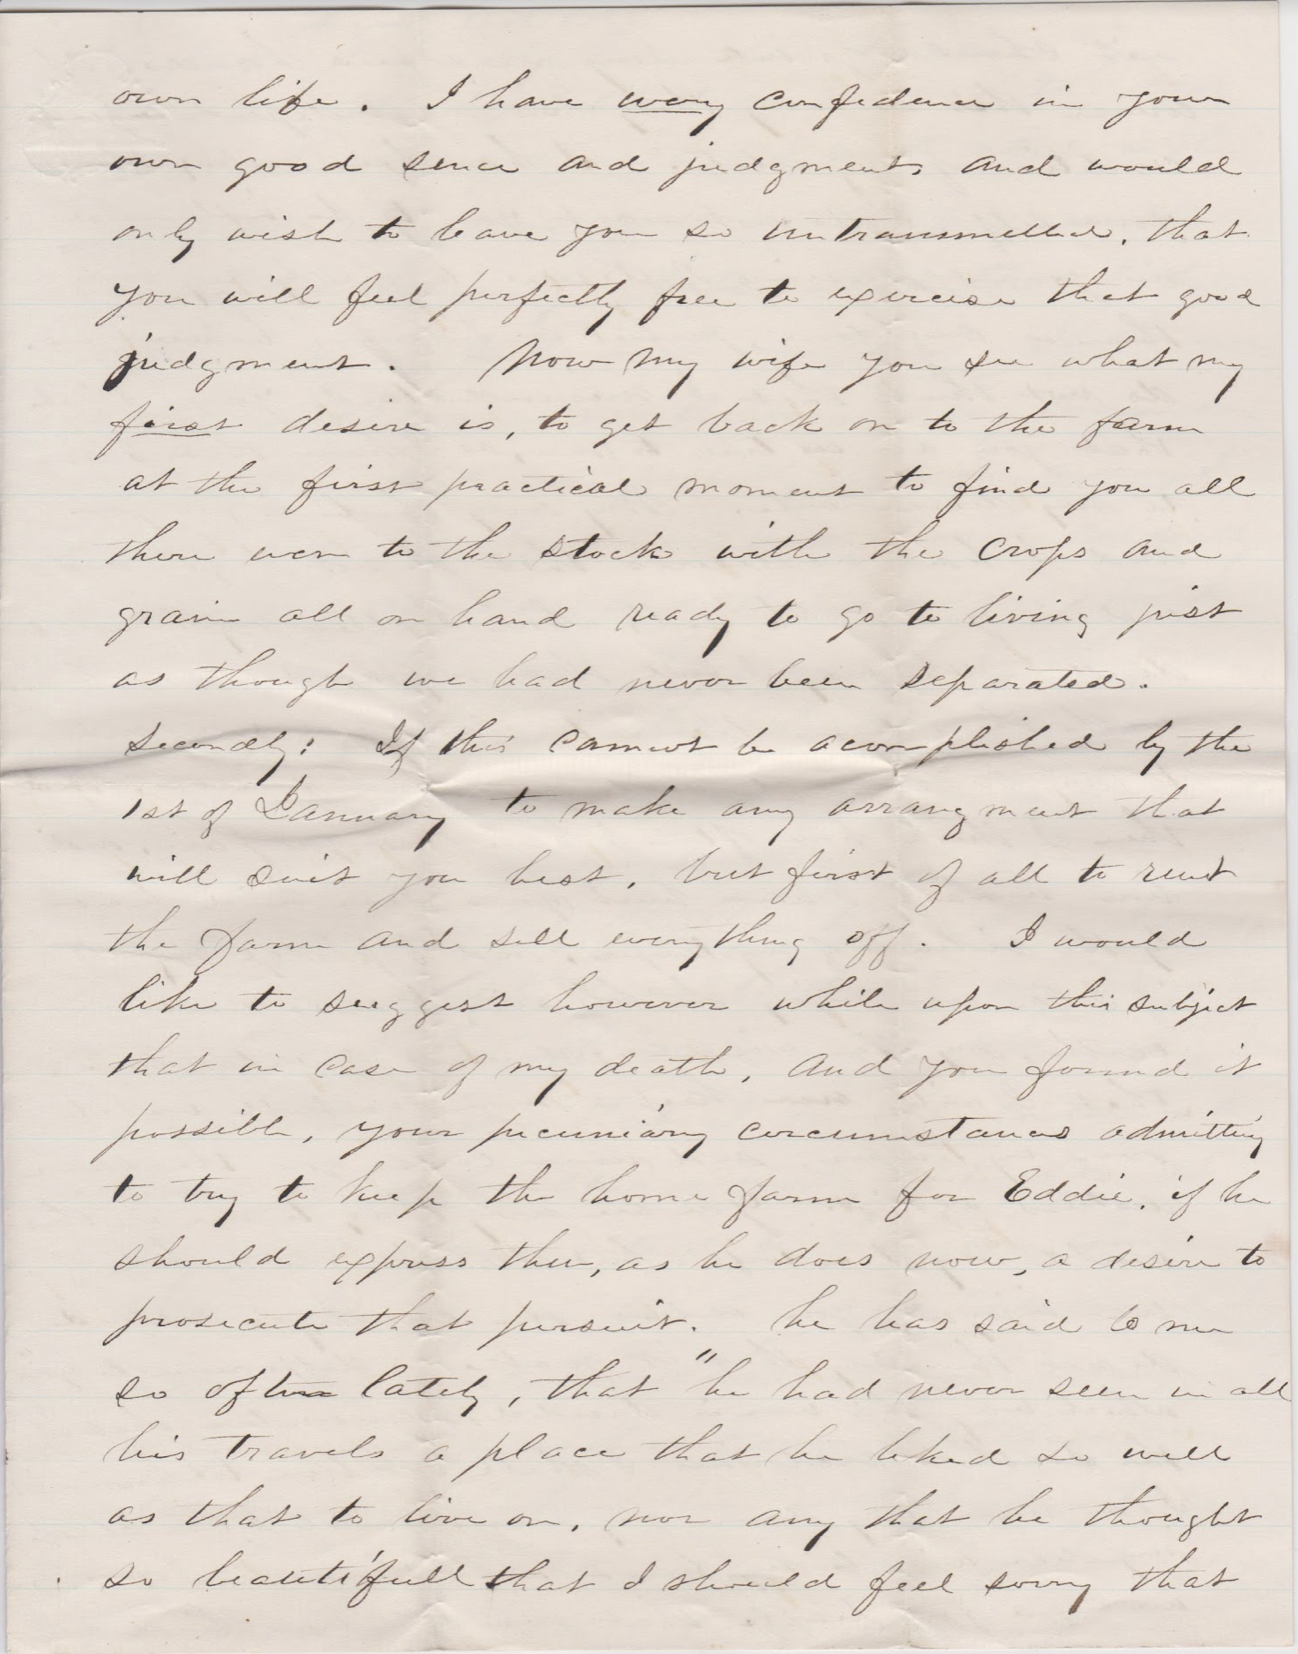 own life. I have every confidence in your
own good sence and judgment, and would
only wish to leave you so untransmelled, that
you will feel perfectly free to exercise that good
judgment. Now my wife you see what my
first desire is, to get back on to the farm
at the first practical moment to find you all
there even to the stock with the crops and
grain all on hand ready to go to living just
as though we had never been separated.
Secondly: If this cannot be acomplished by the
1st of January to make any arrangment that
will suit you best, but first of all to rent
the farm and sell everything off. I would
like to suggest however while upon this subject
that in case of my death, and you found it
possible, your pecuniary circumstances admitting
to try to keep the home farm for Eddie, if he
should express then, as he does now, a desire to
prosecute that persuit. he has said to me
so often lately, that "he had never seen in all
his travels a place that he liked so well
as that to live on, nor any that he thought
so beautifull that I should feel sorry that